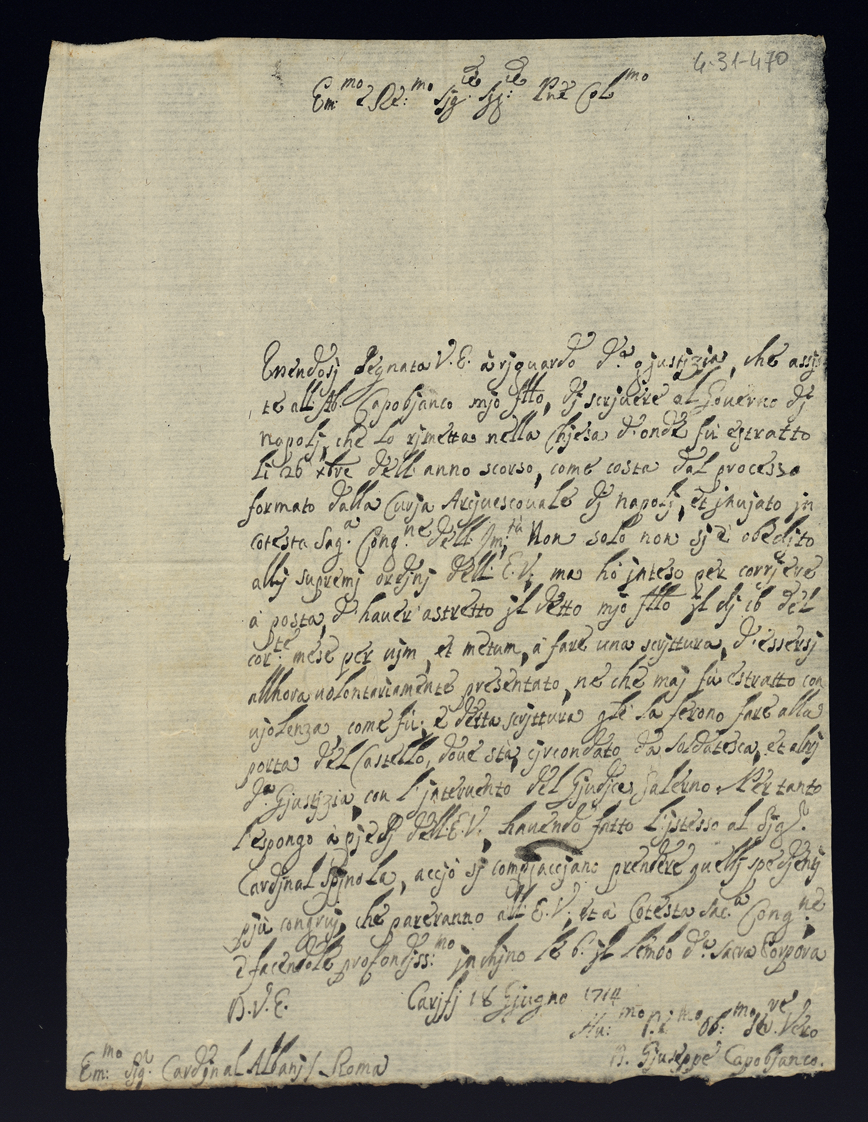 4-31-470
Em:mo e Re:mo Sig:re Sig:re Pne Col:mo
Essendosi degnata V.E. à rjguardo d.a gjustjzja, che assjs=
te all'Ab. Capobjanco mjo fíío, dj scrjuere al Gouerno dj
napolj, che lo rjmetta nella Chjesa d'onde fù estratto
li 26 xbre dell'anno scorso, come costa dal processo
formato dalla Curja Arcjuescouale dj napolj, et jnujato jn
cotesta Sag.a Cong.ne dell'Jm:tà Non solo non sj è obedito
allj supremj ordjnj dell'E.V., ma hò jnteso per corrjere
à posta, d'hauer astretto jl detto mjo fíío jl dj 16 del
cor:te mese per vjm, et metum, à fare una scrjttura, d'essersj
allhora uolontarjamente presentato, ne che maj fù estratto con
ujolenza, come fù; e detta scrjttura gle la ferono fare alla
porta del Castello, doue stà cjrcondato da soldatesca, et altrj
d.a Gjustjzja, con l'jnteruento del Gjudjce Salerno. Per tanto
l'espongo à pjedj dell'E.V., hauendo fatto l'jstesso al Sjg.r
Cardjnal Spjnola, accjò sj compjaccjano prendere quellj spedjentj
pjù congruj, che pareranno all'E.V. et à Cotesta Sac.a Cong.ne
e facendole profondjss:mo jnchjno le b. jl lembo d.a Sacra Porpora
D.V.E. Carjfj 18 Gjugno 1714
Hu:mo D.mo Ob:mo Se.re Vero
D. Gjuseppe Capobjanco.
Em:mo Sjg.r Cardjnal Albanj / Roma